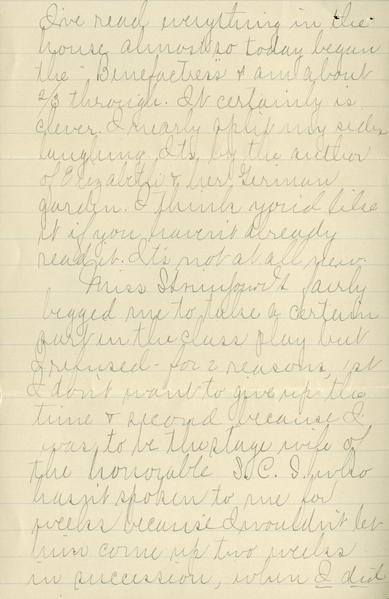 I've read everything in the
house almost so today began
the "Benefactress" & am about
2/3 through. It certainly is
clever. I nearly split my sides
laughing. Its by the author
of Elizabeth & her German
garden. I think you'd like
it if you haven't already
read it. It's not at all new.
Miss fairly
begged me to take a certain
part in the class play but
I refused - for 2 reasons, 1st
I don't want to give up the
time & second because I
was to be the stage wife of
the honorable who
hasn't spoken to me for
weeks because I wouldn't let
him come up two weeks
in succession, when I did